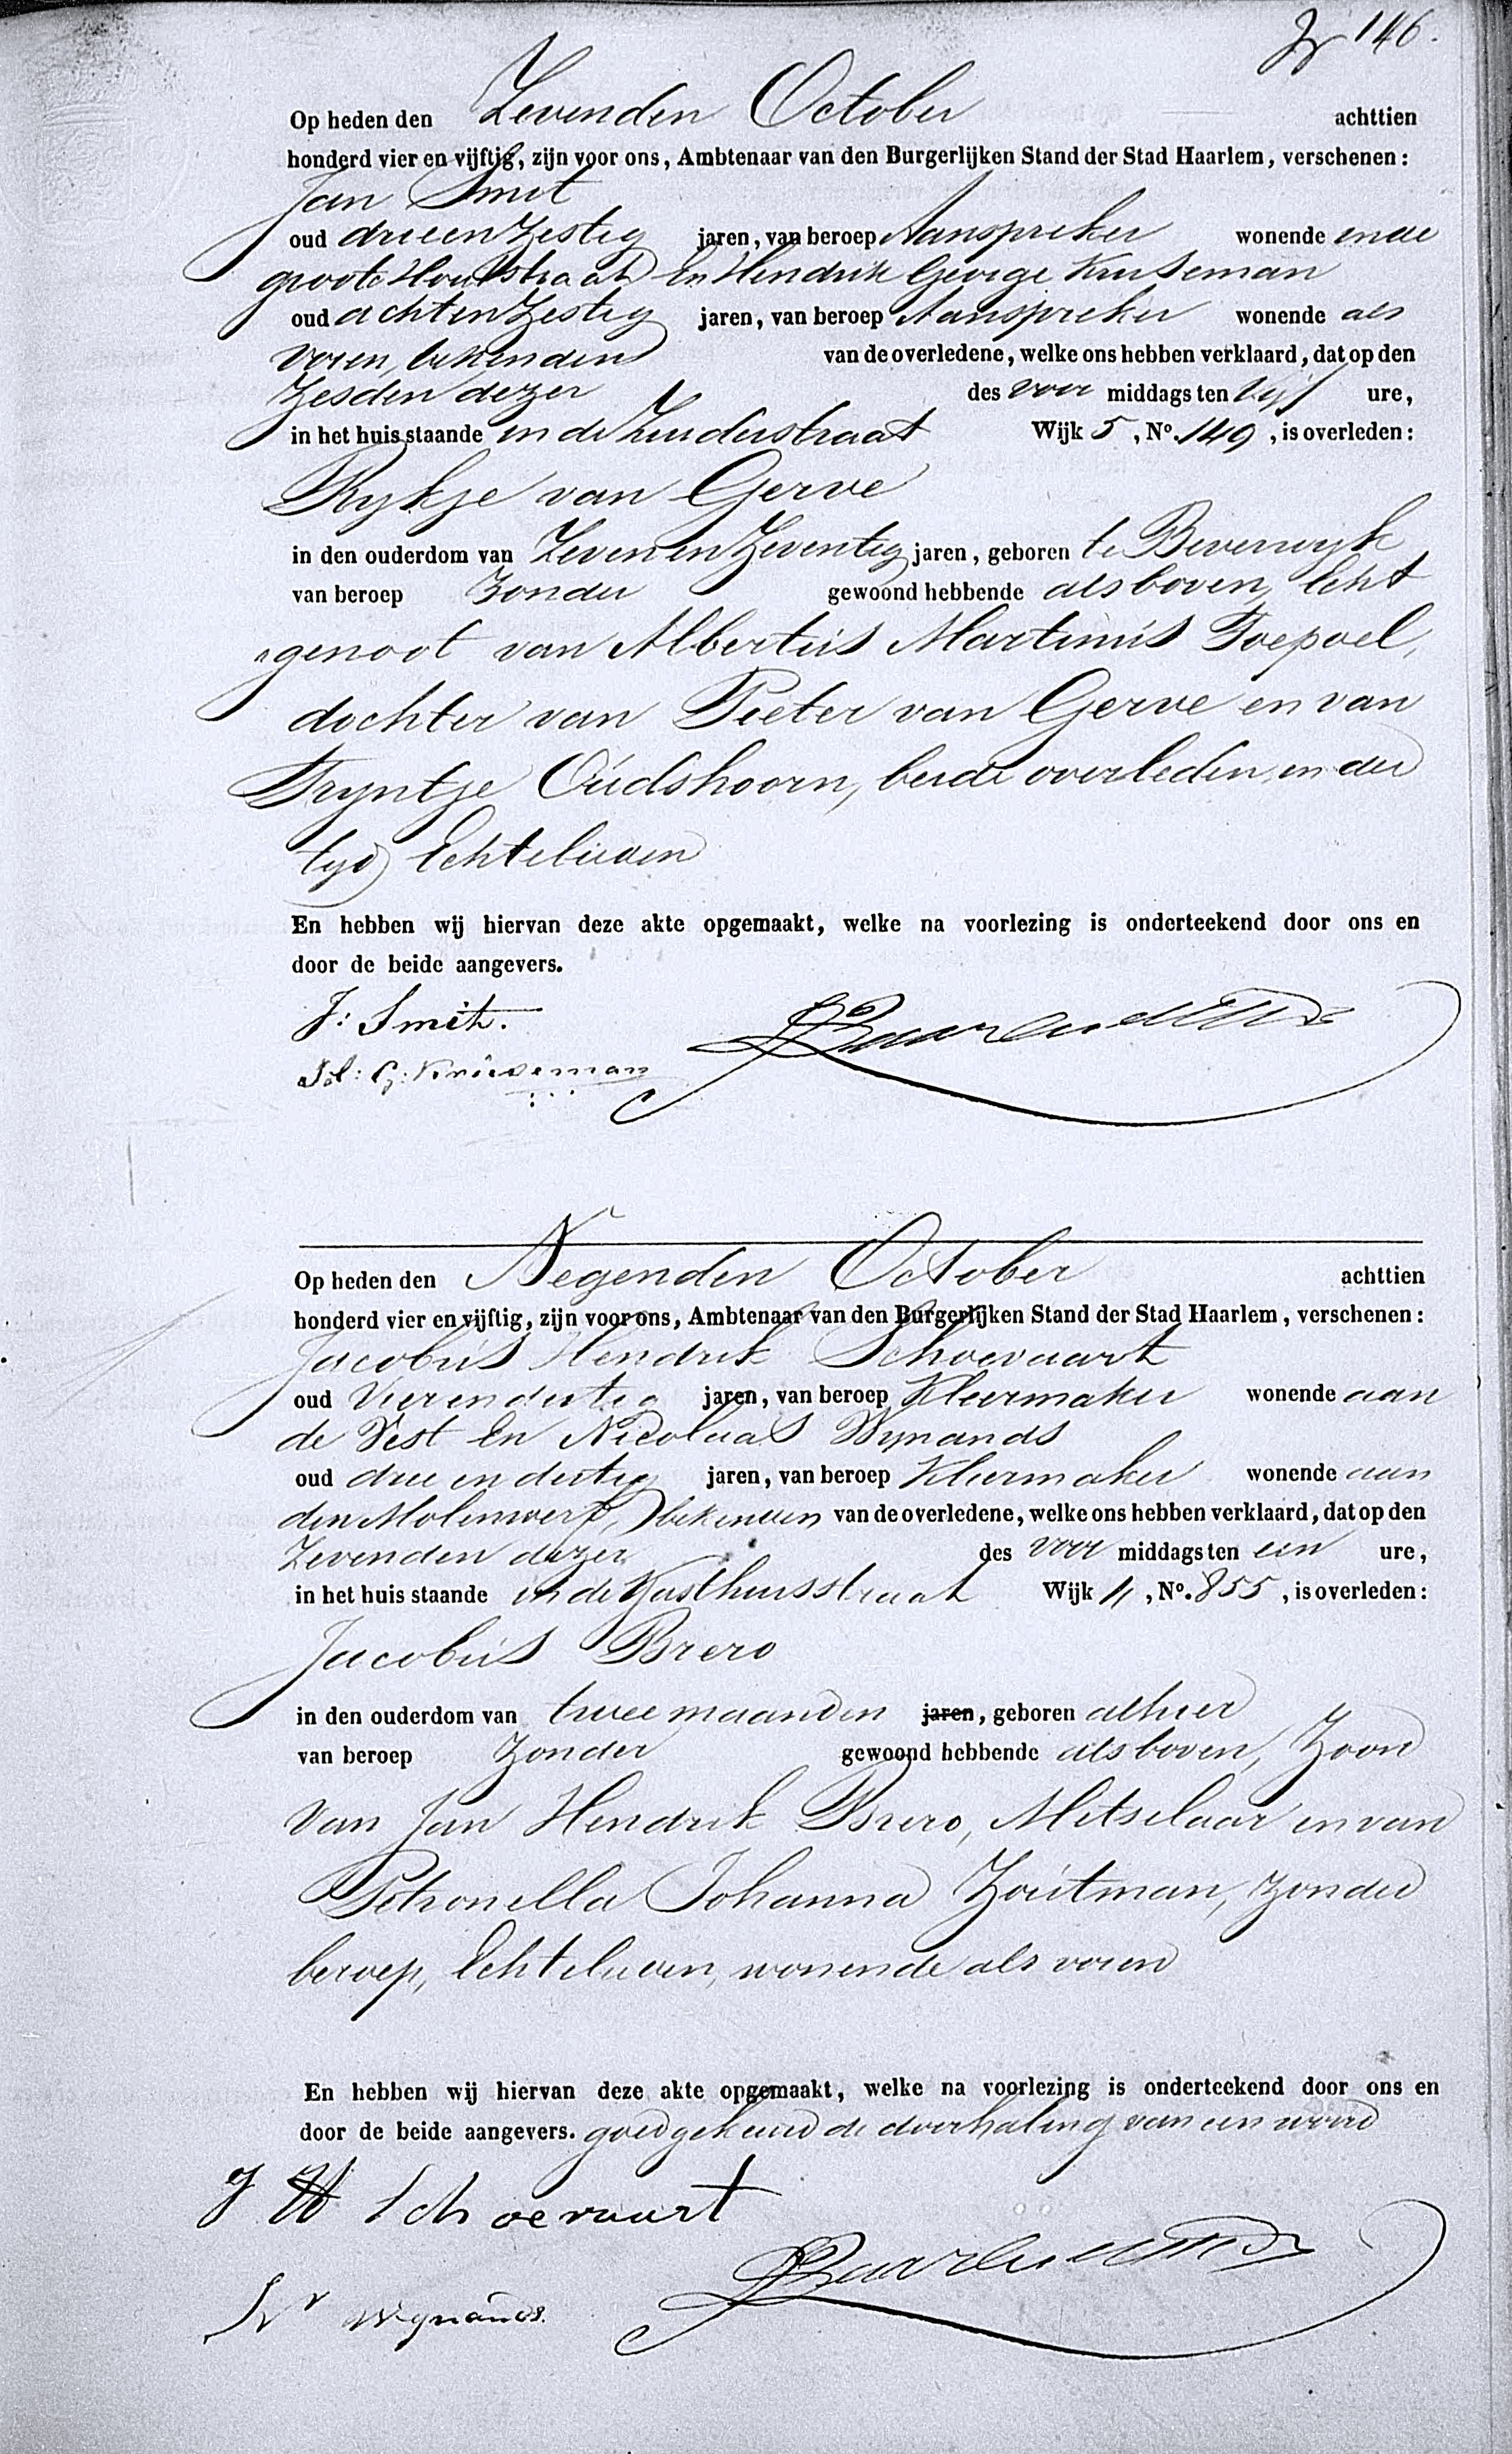 146.
Op heden den Zevenden October achttien
honderd vier en vijftig, zijn voor ons, Ambtenaar van den Burgerlijken Stand der Stad Haarlem, verschenen:
Jan Smit
oud drieenzestig jaren, van beroep Aanspreker wonende in de
groote Houtstraat En Hendrik George Kruseman
oud achtenzestig jaren, van beroep Aanspreker wonende als
voren, bekenden van de overledene, welke ons hebben verklaard, dat op den
Zesden dezer des voor middags ten vijf ure,
in het huis staande in de Zuiderstraat Wijk 5, No. 149, is overleden:
Rykje van Gerve
in den ouderdom van Zevenenzeventig jaren, geboren te Beverwyk
van beroep Zonder gewoond hebbende als boven, Echt
genoot van Albertus Martinus Toepoel,
dochter van Pieter van Gerve en van
Tryntje Oudshoorn, beide overleden, in der
tyd Echtelieden
En hebben wij hiervan deze akte opgemaakt, welke na voorlezing is onderteekend door ons en
door de beide aangevers.
J: Smit.
G: Kruseman
Op heden den Negenden October achttien
honderd vier en vijftig, zijn voor ons, Ambtenaar van den Burgerlijken Stand der Stad Haarlem, verschenen:
Jacobus Hendrik Schoevaart
oud Vierendertig jaren, van beroep Kleermaker wonende aan
de Vest En Nicolaas Wynands
oud drie en dertig jaren, van beroep Kleermaker wonende aan
den Molenwerf, bekenden van de overledene, welke ons hebben verklaard, dat op den
Zevenden dezer des voor middags ten een ure,
in het huis staande in de Kusthuisstraat Wijk 4, No. 855, is overleden:
Jacobus Brero
in den ouderdom van twee maanden jaren, geboren alhier
van beroep Zonder gewoond hebbende als boven, Zoon
van Jan Hendrik Brero, Metselaar en van
Petronella Johanna Zoutman, zonder
beroep, Echtelieden, wonende als voren
En hebben wij hiervan deze akte opgemaakt, welke na voorlezing is onderteekend door ons en
door de beide aangevers. goedgekeurd de doorhaling van een woord
J H Schoevaart
Wynands.